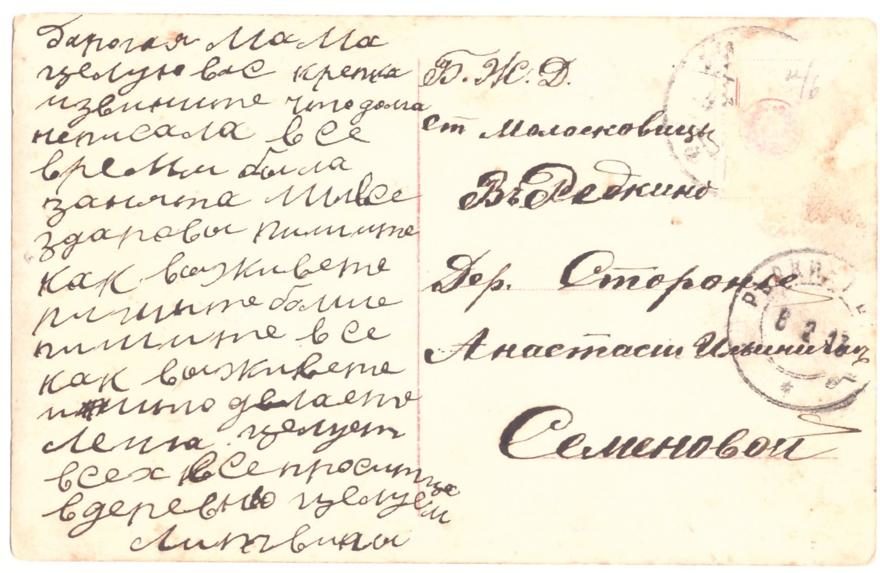 дарогая Мама
целую вас крепка
извините что долга
неписала все
время была
занята мы все
здаровы пишите
как вы живете
пишите болше
пишите все
как вы живете
и што делаете
целует
всех все просится
в деревню целуем
Литвины
Б. Ж. Д.
ст Молосковицы
Въ Редкино
Дер. Сторонье
Анастасіи Ильиничнъ
Семеновой
8 2 13